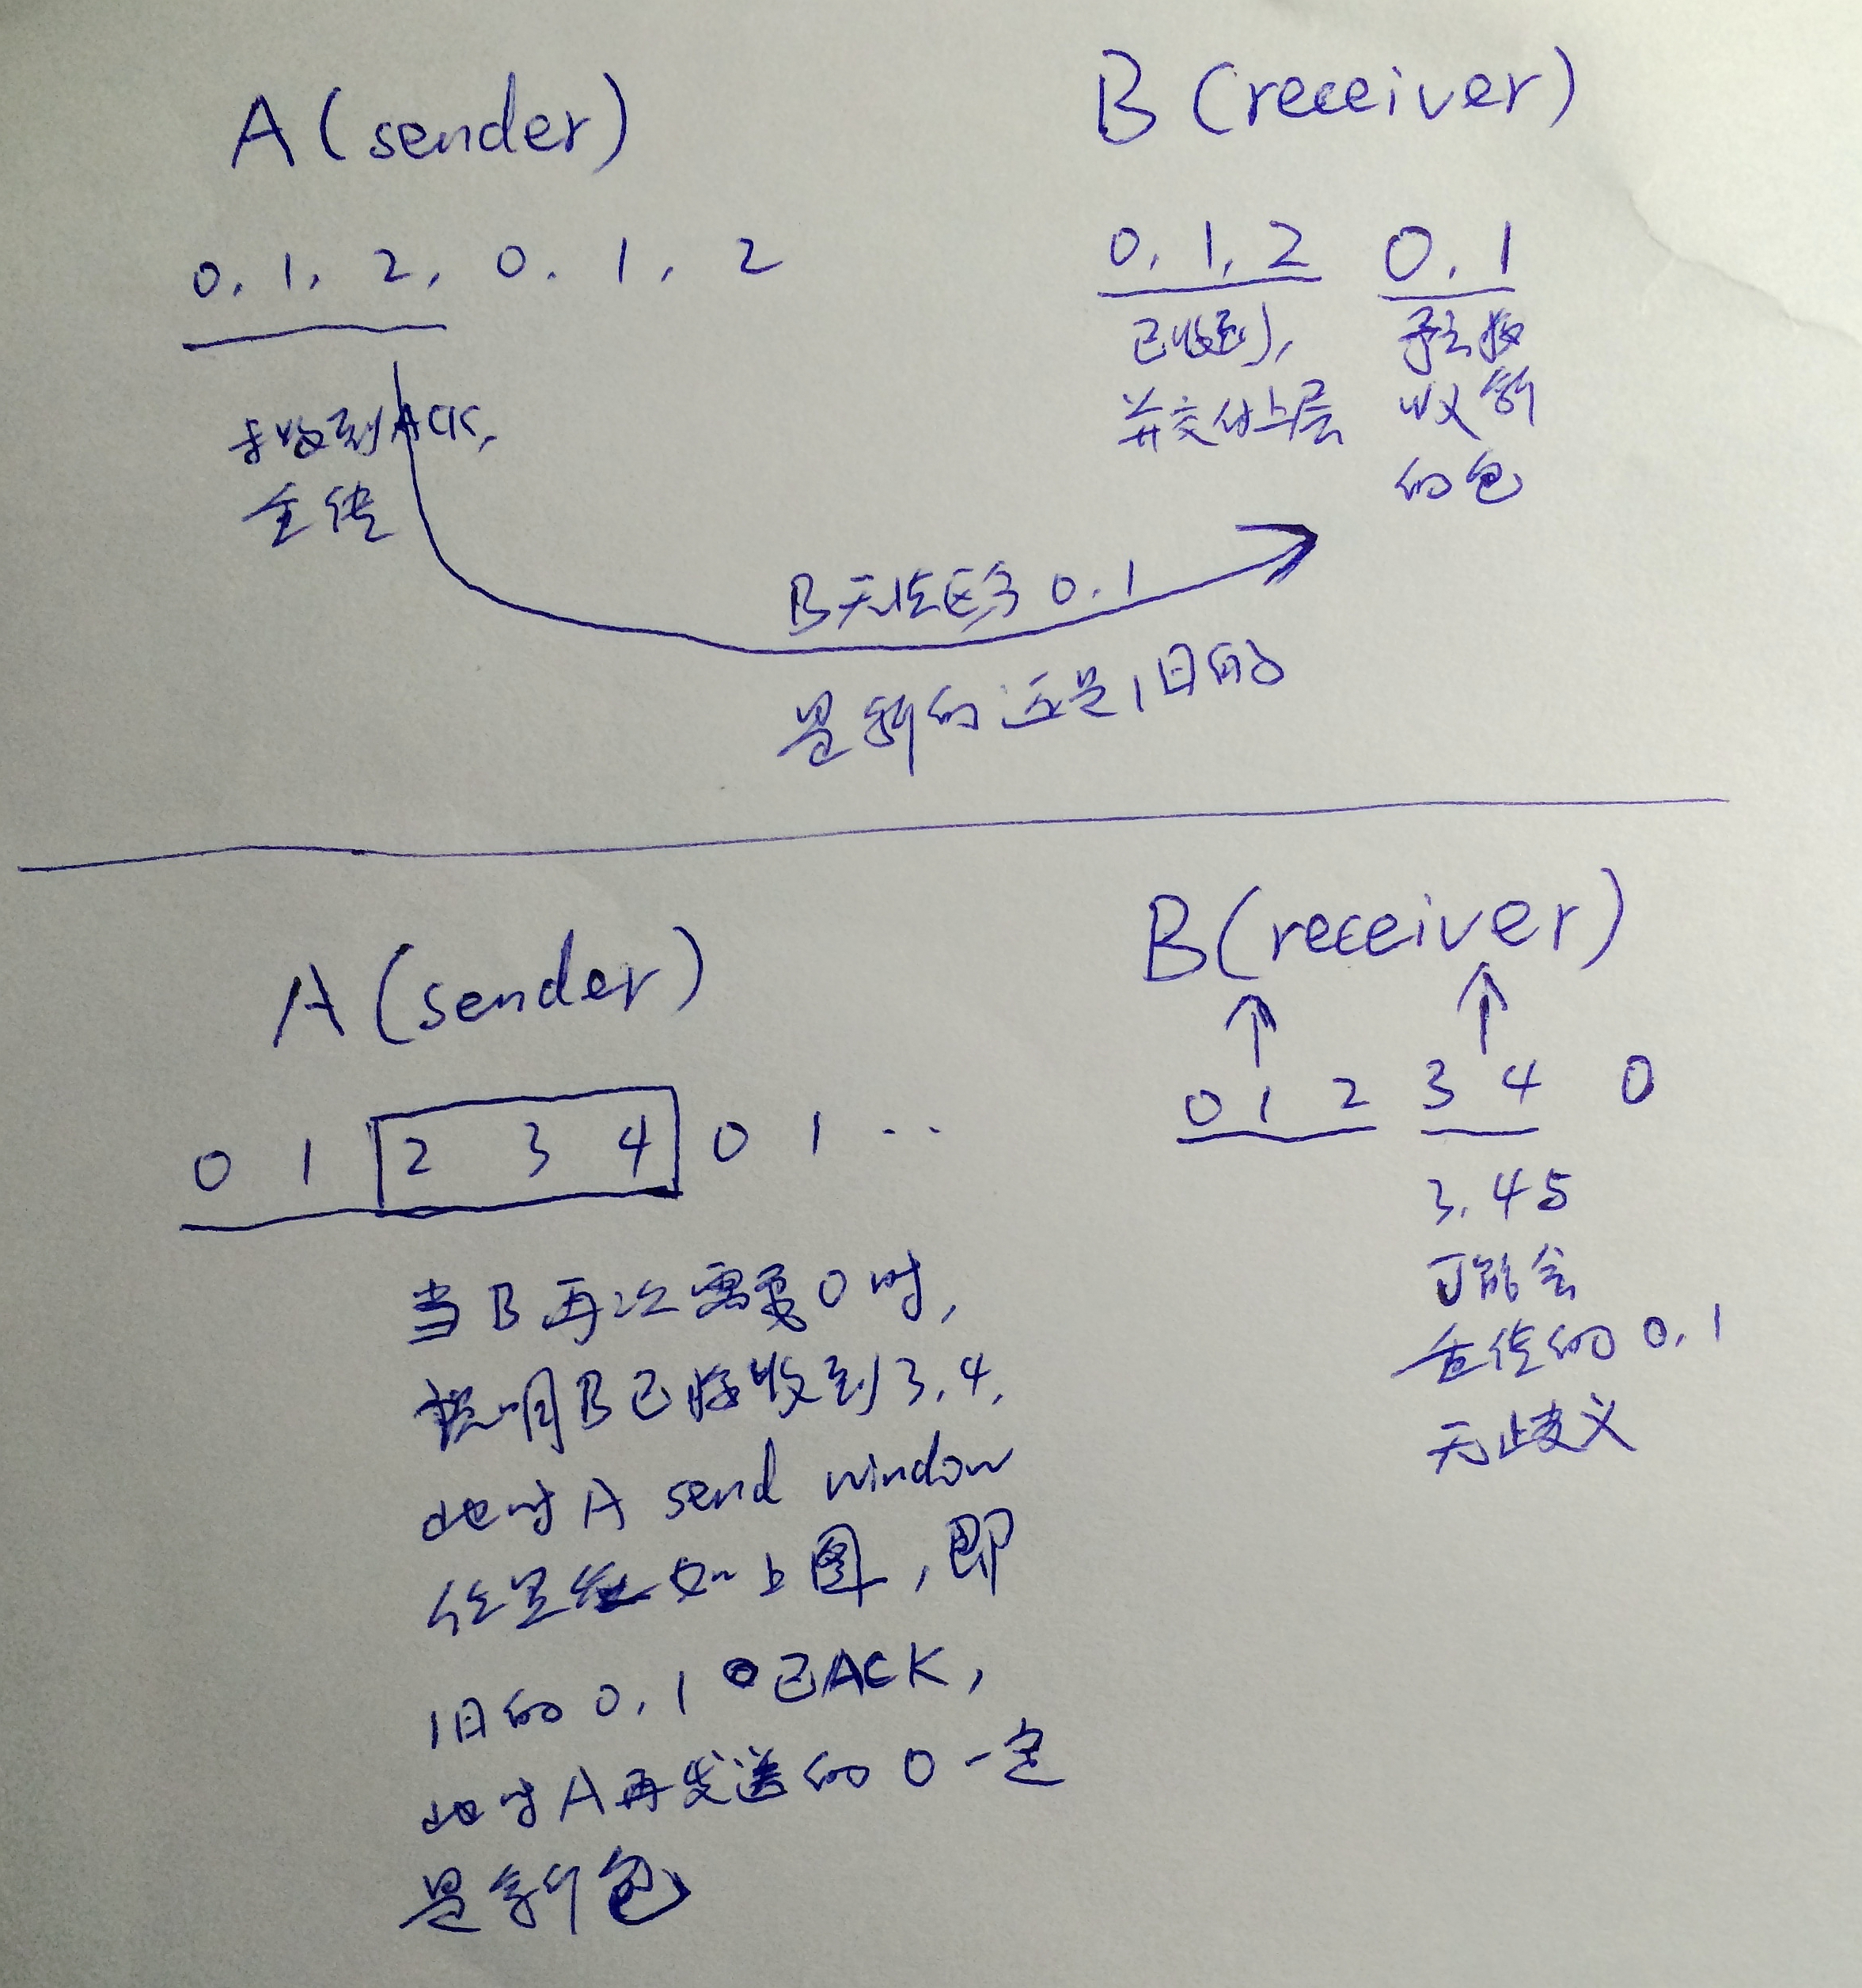 A (sender)
0, 1, 2, 0, 1, 2
未收到ACK,
重传
B (receiver)
0, 1, 2
已收到,
并交付上层
0, 1
接
收新
的包
B无法区分 0, 1
是新的还是旧的
A (sender)
0 1 2 3 4 0 1 ..
当B再次需要0时,
说明B已经收到3,4,
此时A send window
位置 如上图,即
旧的0,1 已ACK,
此时A再发送的0一定
是新包
B(receiver)
0 1 2 3 4 0
3, 4与
可能会
重传的0,1
无歧义